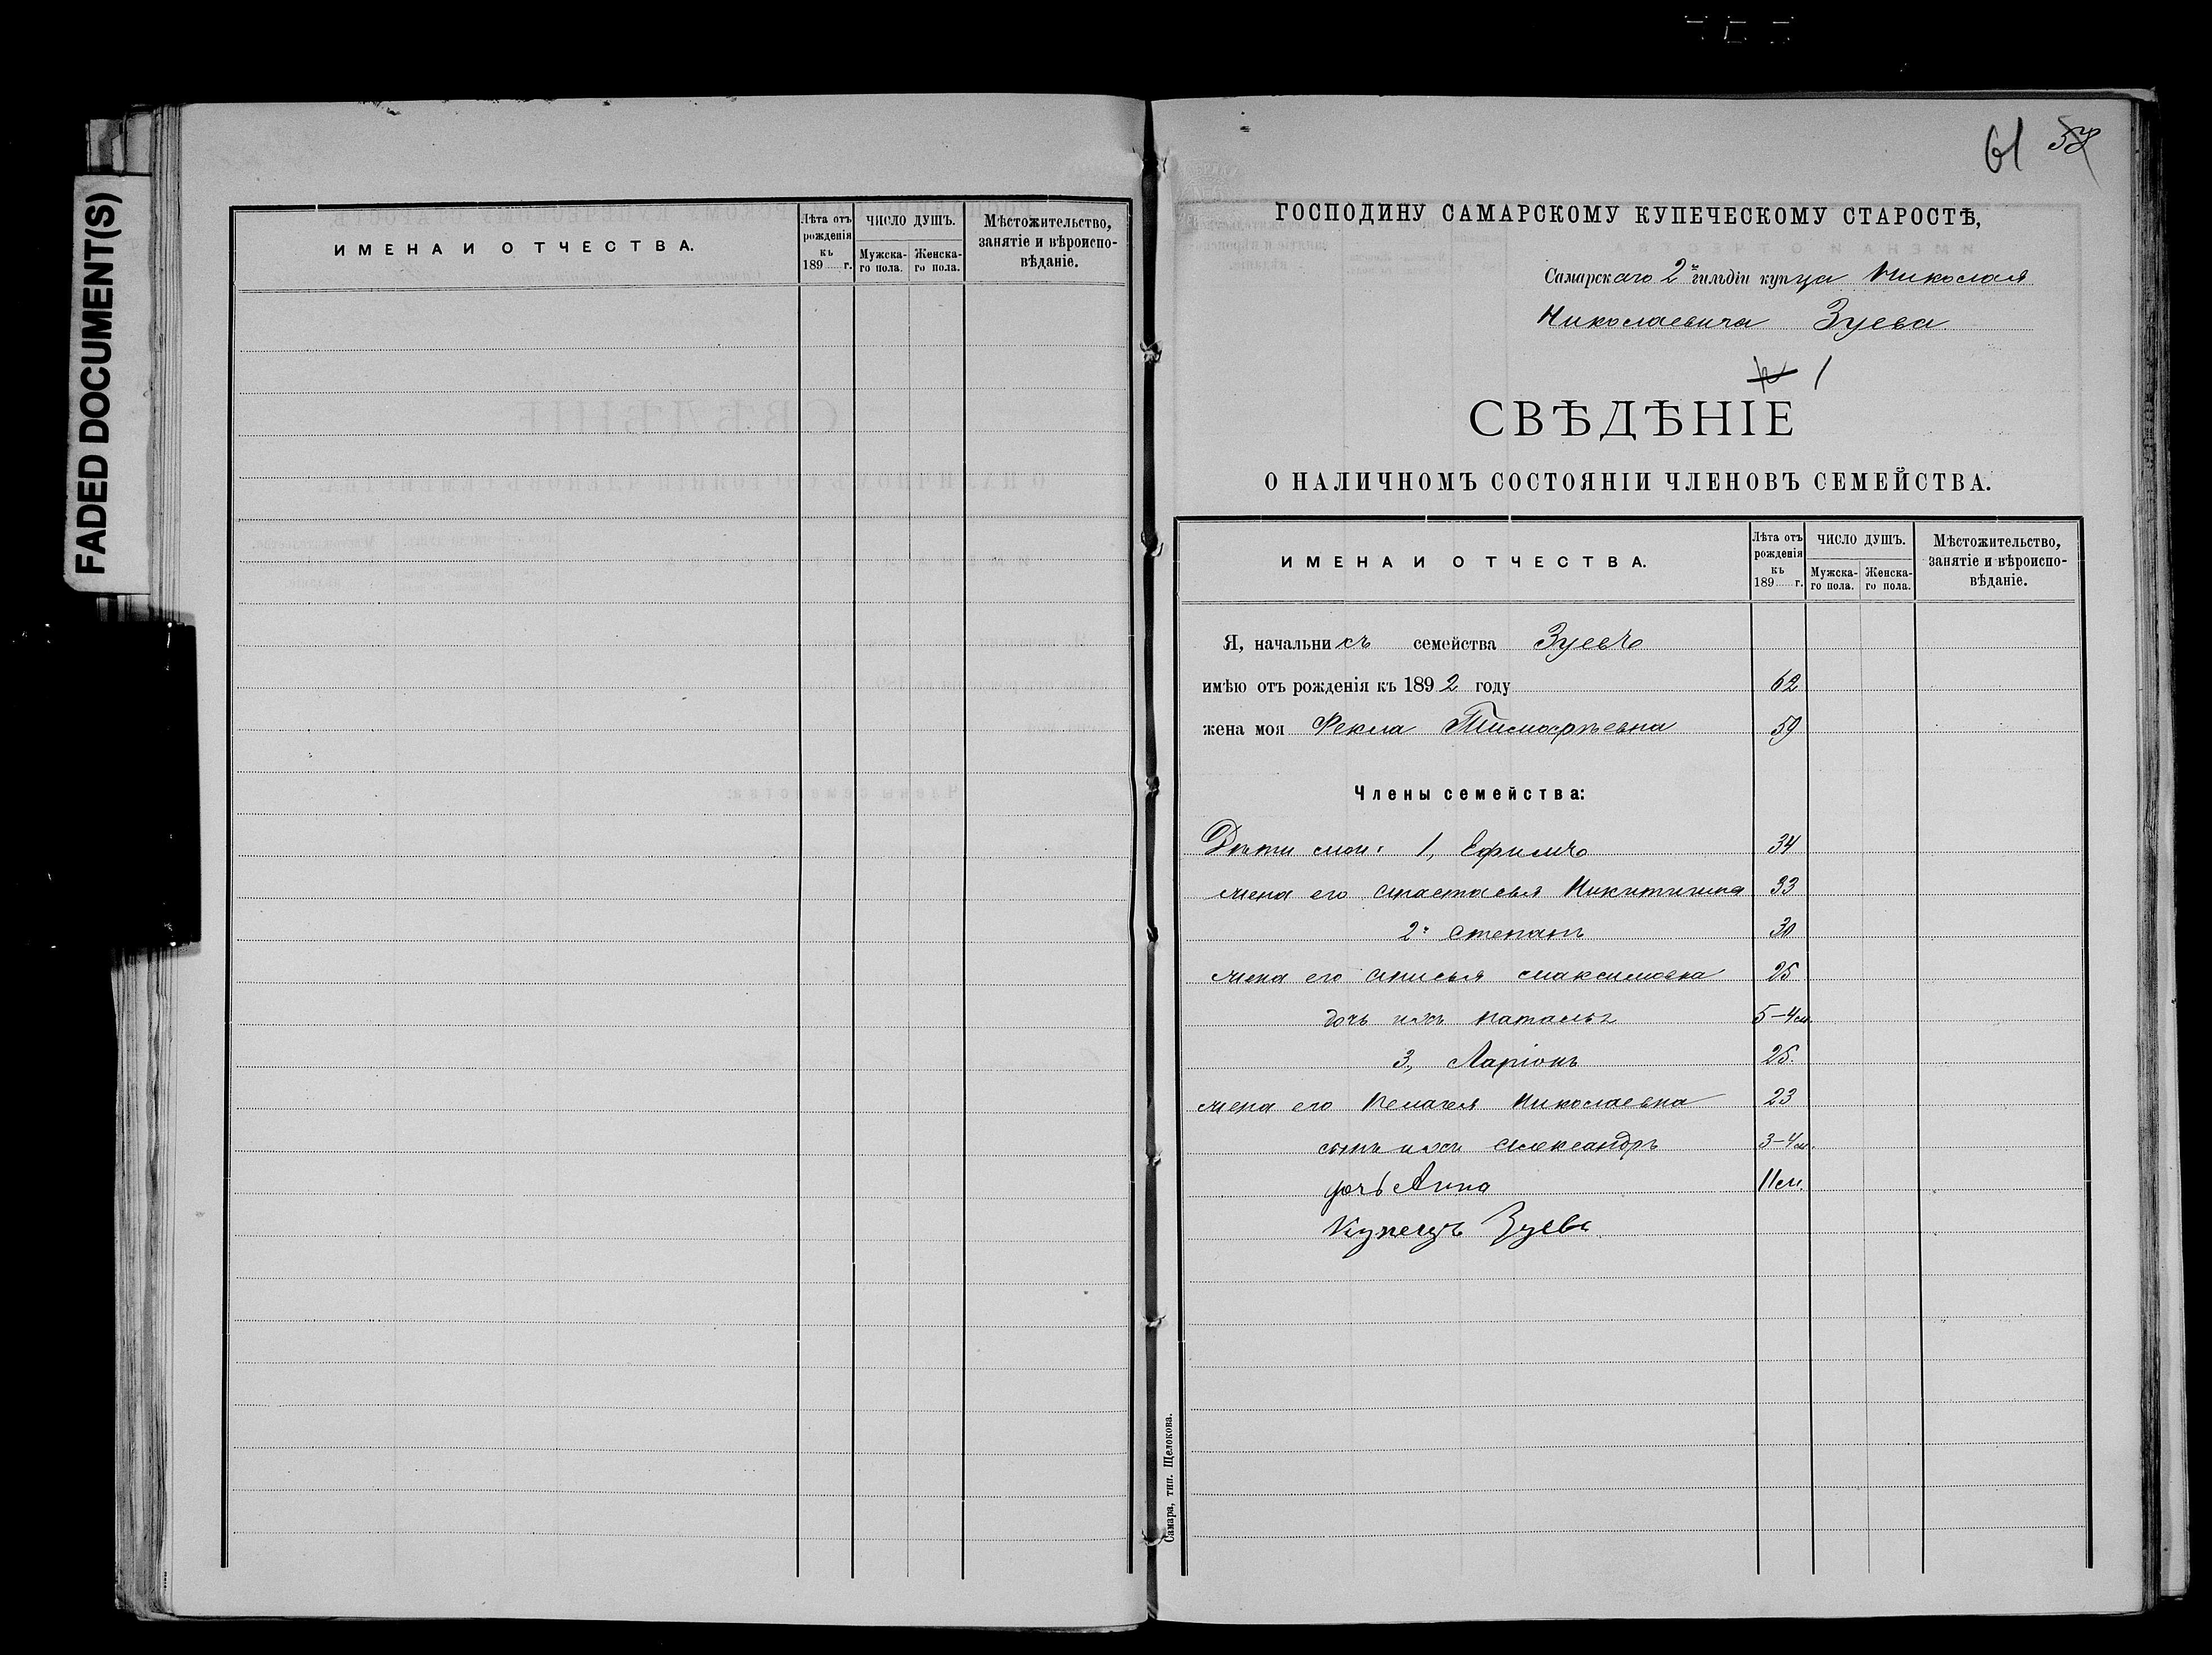 FADED DOCUMENT(S)
ИМЕНА И ОТЧЕСТВА.
Лѣта отъ рожденія къ 189 г.
ЧИСЛО ДУШЪ.
Мужска-го пола.
Женска-го пола.
Мѣстожительство, занятіе и вѣроиспо-вѣданіе.
61 58
ГОСПОДИНУ САМАРСКОМУ КУПЕЧЕСКОМУ СТАРОСТѢ,
Самарскаго 2й гильдіи купца Николая
Николаевича Зуева
1
СВѢДѢНІЕ
О НАЛИЧНОМЪ СОСТОЯНІИ ЧЛЕНОВЪ СЕМЕЙСТВА.
ИМЕНА И ОТЧЕСТВА.
Лѣта отъ рожденія къ 189 г.
ЧИСЛО ДУШЪ.
Мужска-го пола.
Женска-го пола.
Мѣстожительство, занятіе и вѣроиспо-вѣданіе.
Я, начальникъ семейства Зуевъ
имѣю отъ рожденія къ 1892 году 62
жена моя Фекла Тимофѣевна 59
Члены семейства:
Дѣти мои: 1, Ефимъ 34
жена его Анастасья Никитична 33
2. Степанъ 30
жена его Анисья Максимовна 25
дочь ихъ Наталья 5-4м.
3, Ларіонъ 25.
жена его Пелагея Николаевна 23
сынъ ихъ Александръ 3-4м.
дочь Анна 11м.
Купецъ Зуевъ
Самара, тип. Щелокова.